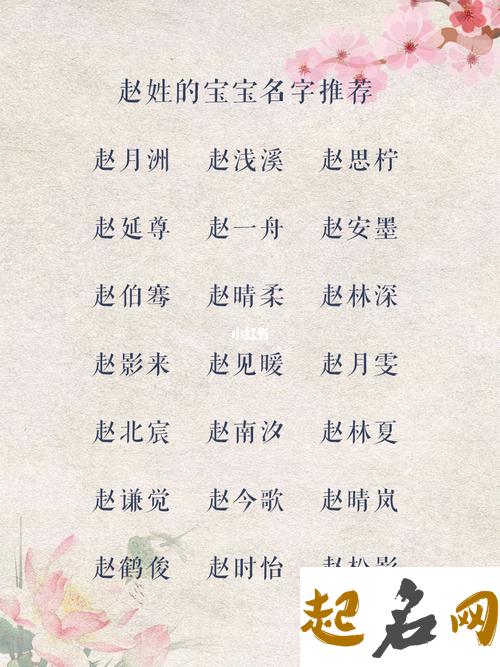 赵姓的宝宝名字推荐
赵月洲 赵浅溪 赵思柠
赵延尊 赵一舟 赵安墨
赵伯骞 赵晴柔 赵林深
小红书
赵影来 赵见暖 赵月雯
赵北宸 赵南汐 赵林夏
赵谦觉 赵今歌 赵晴岚
赵鹤俊 赵时怡 赵松影
起名网